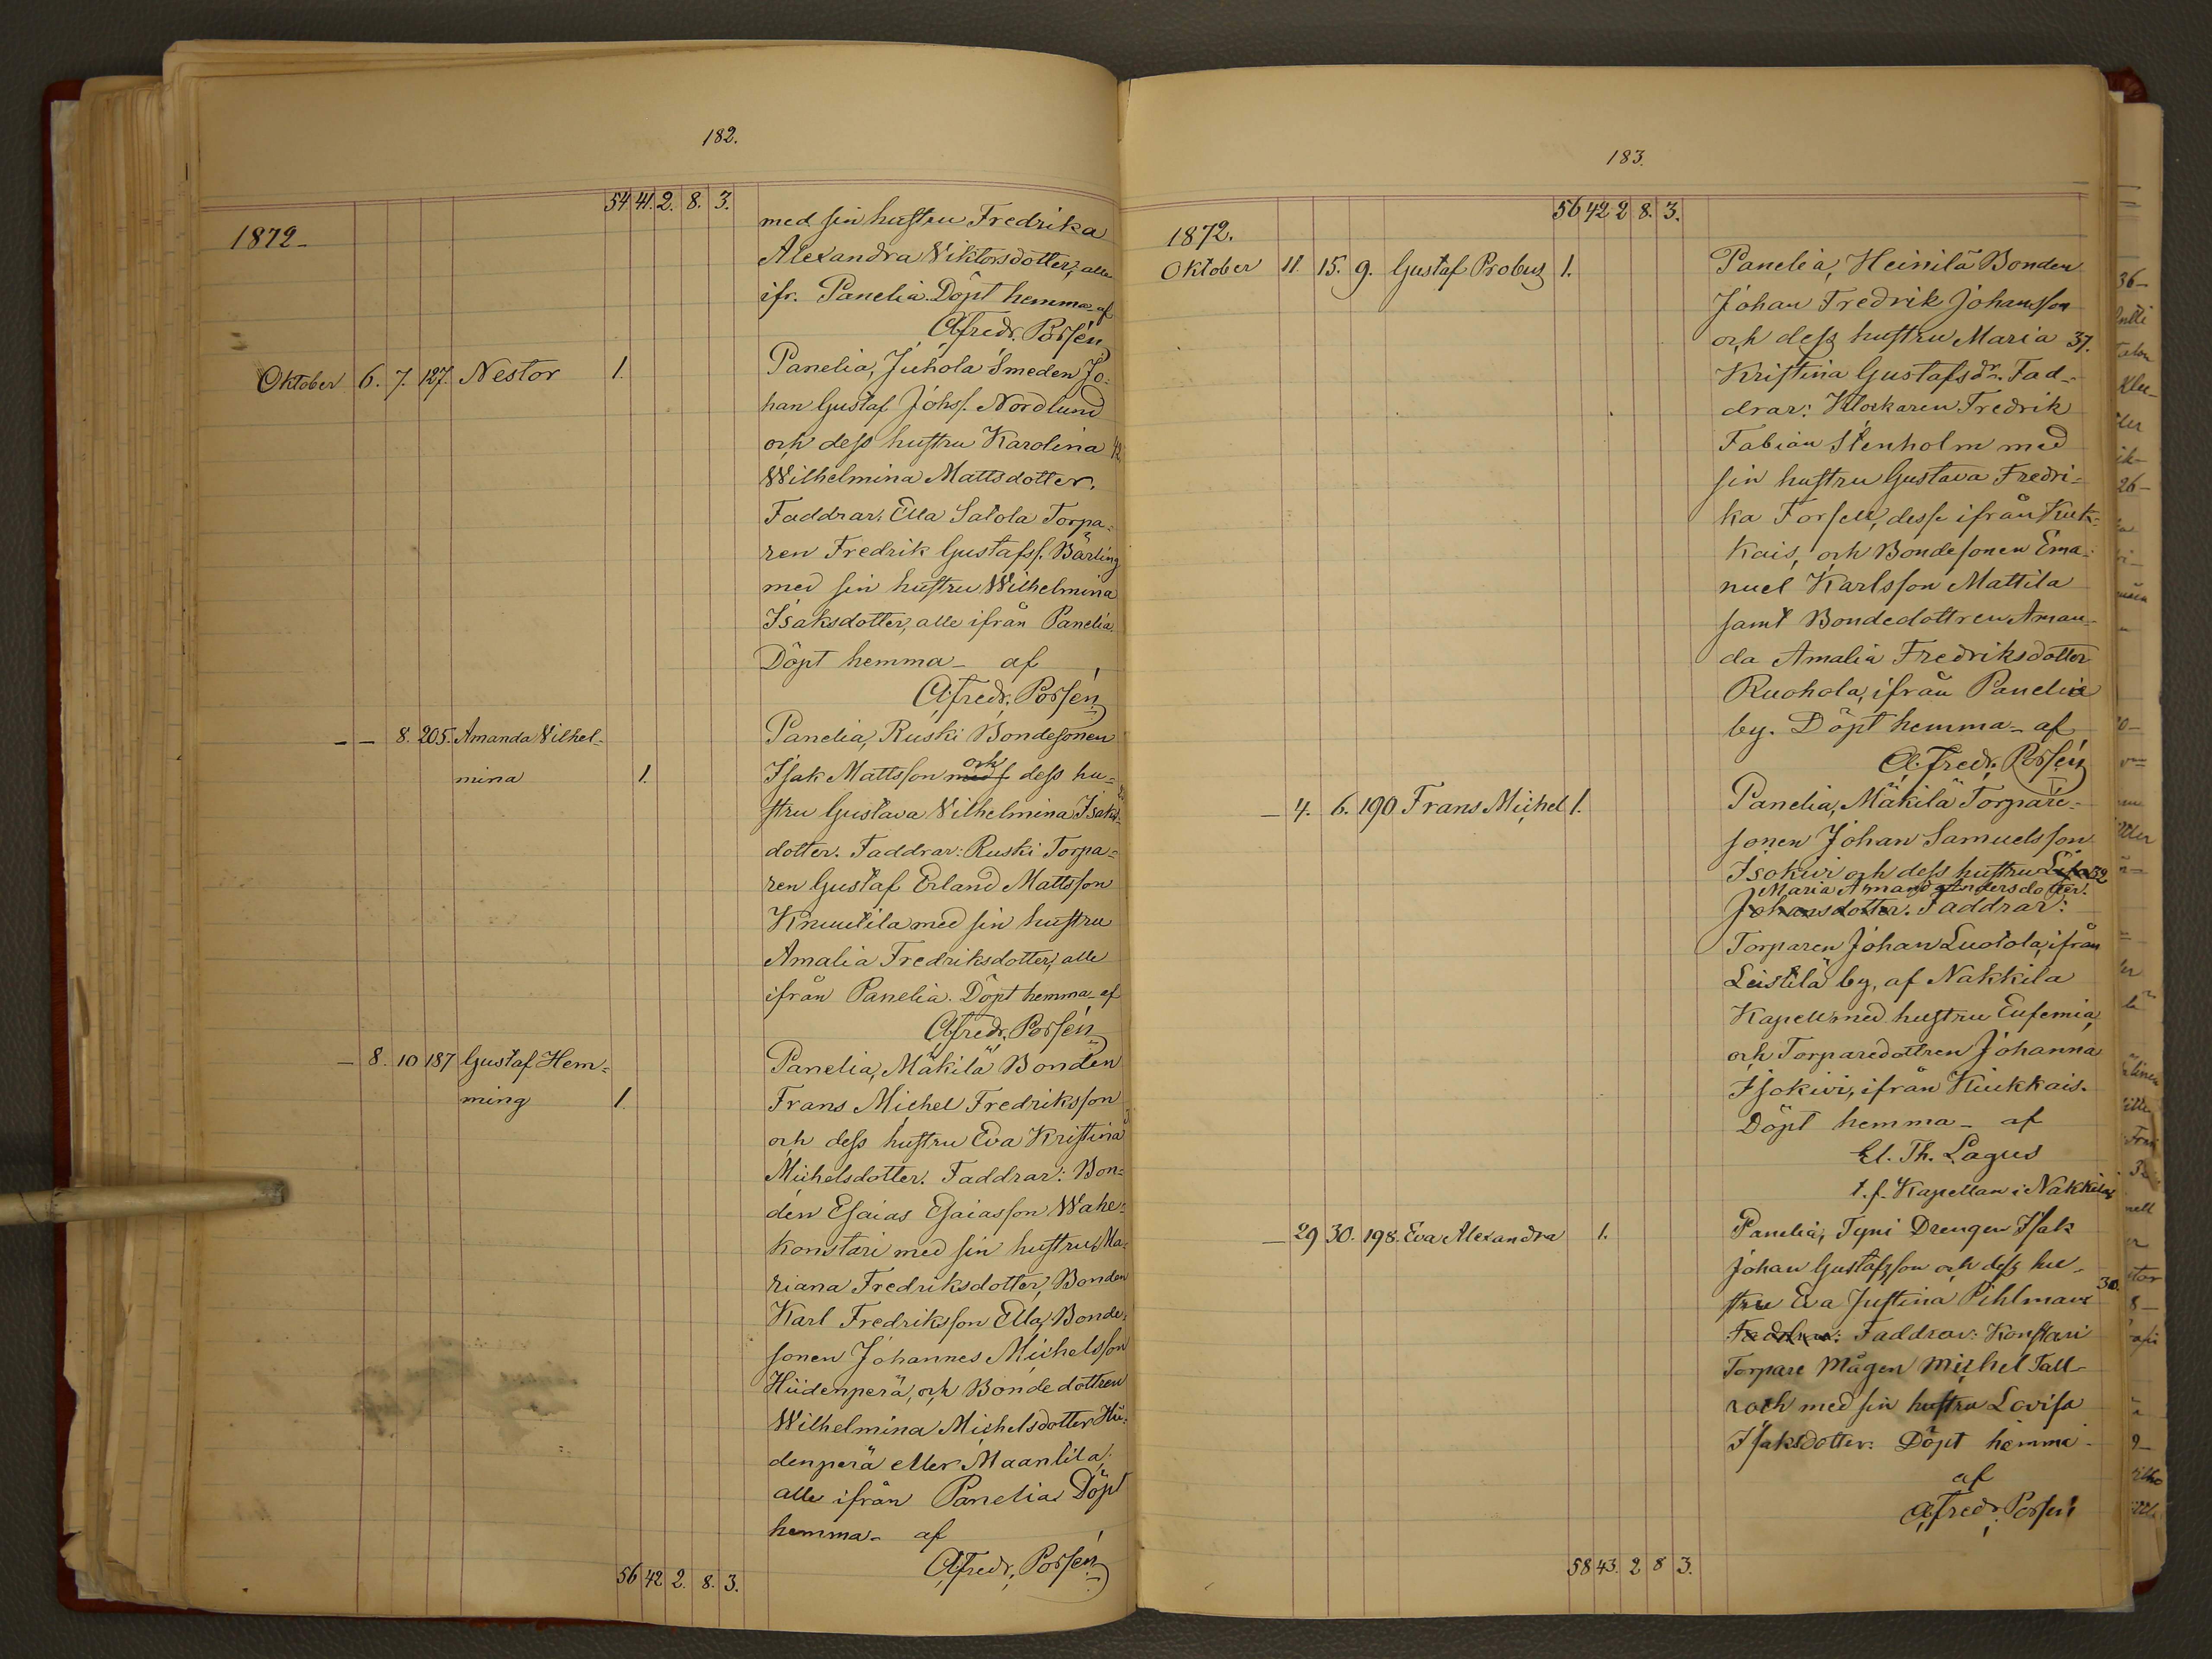 182.
54 41. 2. 8. 3.
1872-
med sin hustru Fredrika
Alexandra Viktorsdotter, alle
ifr. Panelia. Döpt hemma - af
A. Fredr. Porsén
Oktober 6. 7. 127. Nestor 1.
Panelia, Juhola Smeden Jo-
han Gustaf Johss. Nordlund
och dess hustru Karolina 42.
Wilhelmina Mattsdotter.
Faddrar: Ella Salola Torpa-
ren Fredrik Gustafss. Bärling
med sin hustru Wilhelmina
Isaksdotter, alle ifrån Panelia.
Döpt hemma - af
A. Fredr. Porsén
- - 8. 205. Amanda Vilhel-
mina 1.
Panelia, Ruski Bondesonen
Isak Mattsson och dess hu-
stru Gustava Vilhelmina Isaks-
dotter. Faddrar: Ruski Torpa-
ren Gustaf Erland Mattsson
Knuutila med sin hustru
Amalia Fredriksdotter, alle
ifrån Panelia. Döpt hemma - af
A. Fredr. Porsén
- 8. 10 187 Gustaf Hem-
ming 1.
Panelia, Mäkilä Bonden
Frans Michel Fredriksson
och dess hustru Eva Kristina
Michelsdotter. Faddrar: Bon-
den Esaias Esaiasson Wahe-
konstari med sin hustru Ma-
riana Fredriksdotter, Bonden
Karl Fredriksson Ella, Bonde-
sonen Johannes Michelsson
Hiidenperä, och Bondedottren
Wilhelmina Michelsdotter Hii-
denperä eller Maantila,
alle ifrån Panelia Döpt
hemma - af
A. Fredr. Porsén
56 42 2. 8. 3.
183.
56 42 2 8. 3.
1872.
Oktober 11. 15. 9. Gustaf Probus 1.
Panelia, Heinilä Bonden
Johan Fredrik Johansson
och dess hustru Maria 37.
Kristina Gustafsdr. Fad-
drar: Klockaren Fredrik
Fabian Stenholm med
sin hustru Gustava Fredri-
ka Forsell, desse ifrån Kiuk-
kais, och Bondesonen Ema-
nuel Karlsson Mattila
samt Bondedottren Aman-
da Amalia Fredriksdotter
Ruohola, ifrån Panelia
by. Döpt hemma - af
A. Fredr. Porsén
- 4. 6. 190 Frans Michel 1.
Panelia, Mäkilä Torpare-
sonen Johan Samuelsson
Isokivi och dess hustru Lisa 32
Maria Amanda Andersdotter.
Johansdotter. Faddrar:
Torparen Johan Luotola, ifrån
Leistilä by, af Nakkila
Kapell, med hustru Eufemia,
och Torparedottren Johanna
Isokivi, ifrån Kiukkais.
Döpt hemma - af
El. Th. Lagus
t. f. Kapellan i Nakkila
- 29 30. 198. Eva Alexandra 1.
Panelia, Tyni Drengen Isak
Johan Gustafsson och dess hu-
stru Eva Justina Pihlman 30.
Faddrar: Konstari
Torpare Mågen Michel Tall-
roth med sin hustru Lovisa
Isaksdotter. Döpt hemma -
af
A. Fredr. Porsén
58 43. 2 8 3.